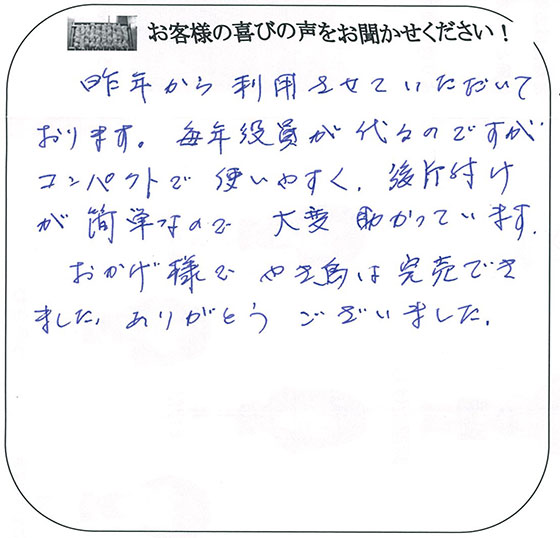 お客様の喜びの声をお聞かせください！
昨年から利用させていただいて
おります。毎年役員が代るのですが
コンパクトで使いやすく、後片付け
が簡単なので大変助かっています。
おかげ様でやき鳥は完売でき
ました。ありがとうございました。